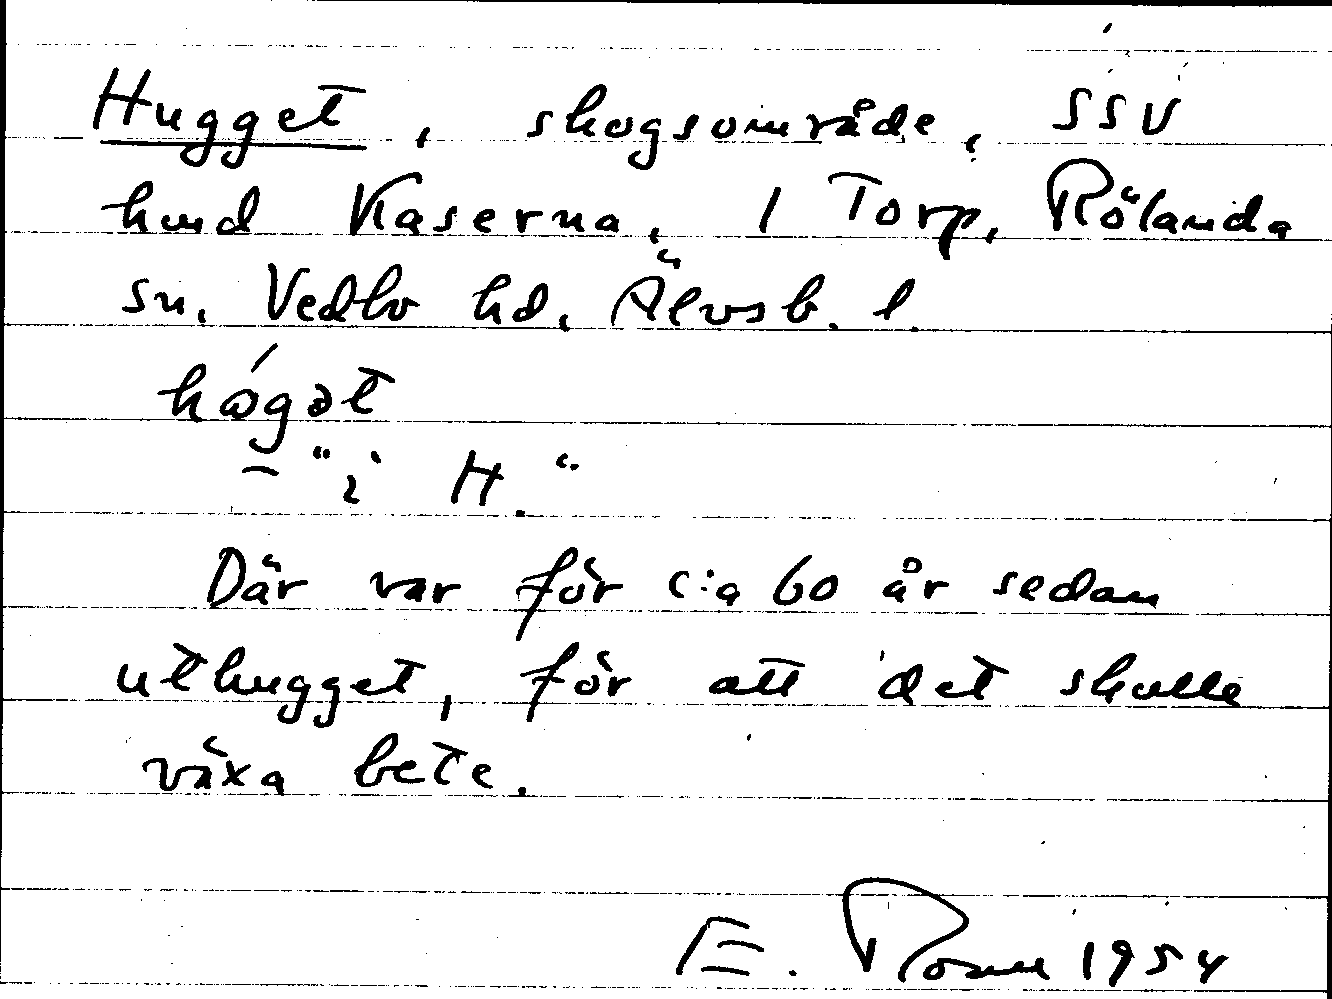 Hugget, skogsområde, SSV
hmd Kaserna, 1 Torp, Rölanda
sn, Vedbo hd, Älvsb. l.
hágət
– "i H."
Där var för c:a 60 år sedan
uthugget, för att det skulle
växa bete.
E. 1954